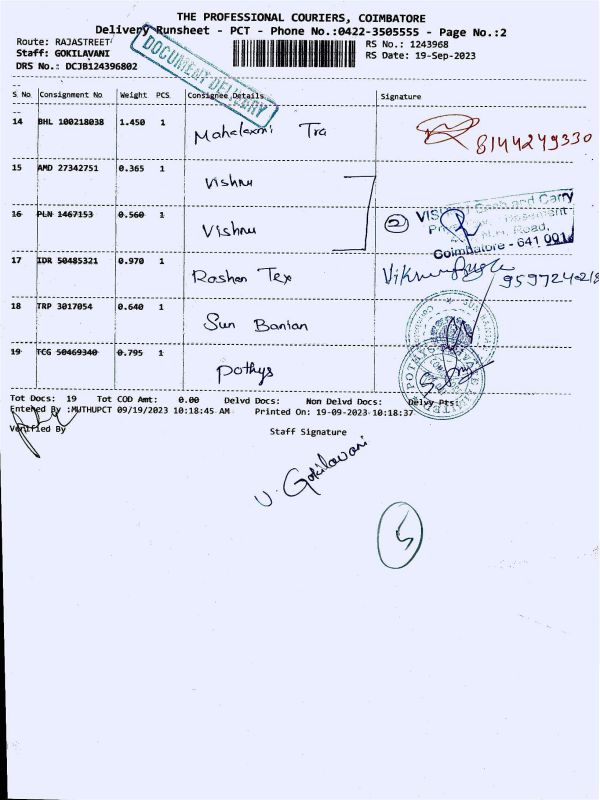 THE PROFESSIONAL COURIERS, COIMBATORE
Delivery Runsheet - PCT - Phone No.:0422-3505555 - Page No.:2
Route: RAJASTREET
RS No.: 1243968
Staff: GOKILAVANI
RS Date: 19-Sep-2023
DRS No.: DCJB124396802
DOCUMENT DELIVERY
S No Consignment No Weight PCS Consignee Details Signature
14 BHL 100218038 1.450 1 Mahalaxmi Tra 8144249330
15 AMD 27342751 0.365 1 Vishnu
16 PLN 1467153 0.560 1 Vishnu 2
Cash and Carry
Basement
Road,
Coimbatore - 641 001.
17 IDR 50485321 0.970 1 Roshan Tex 9597240218
18 TRP 3017054 0.640 1 Sun Banian
19 TCG 50469340 0.795 1 Pothys
POTHYS PRIVATE LIMITED
Tot Docs: 19 Tot COD Amt: 0.00 Delvd Docs: Non Delvd Docs: Delvy Pts:
Entered By :MUTHUPCT 09/19/2023 10:18:45 AM Printed On: 19-09-2023 10:18:37
Verified By
Staff Signature
V. Gokilavani
5